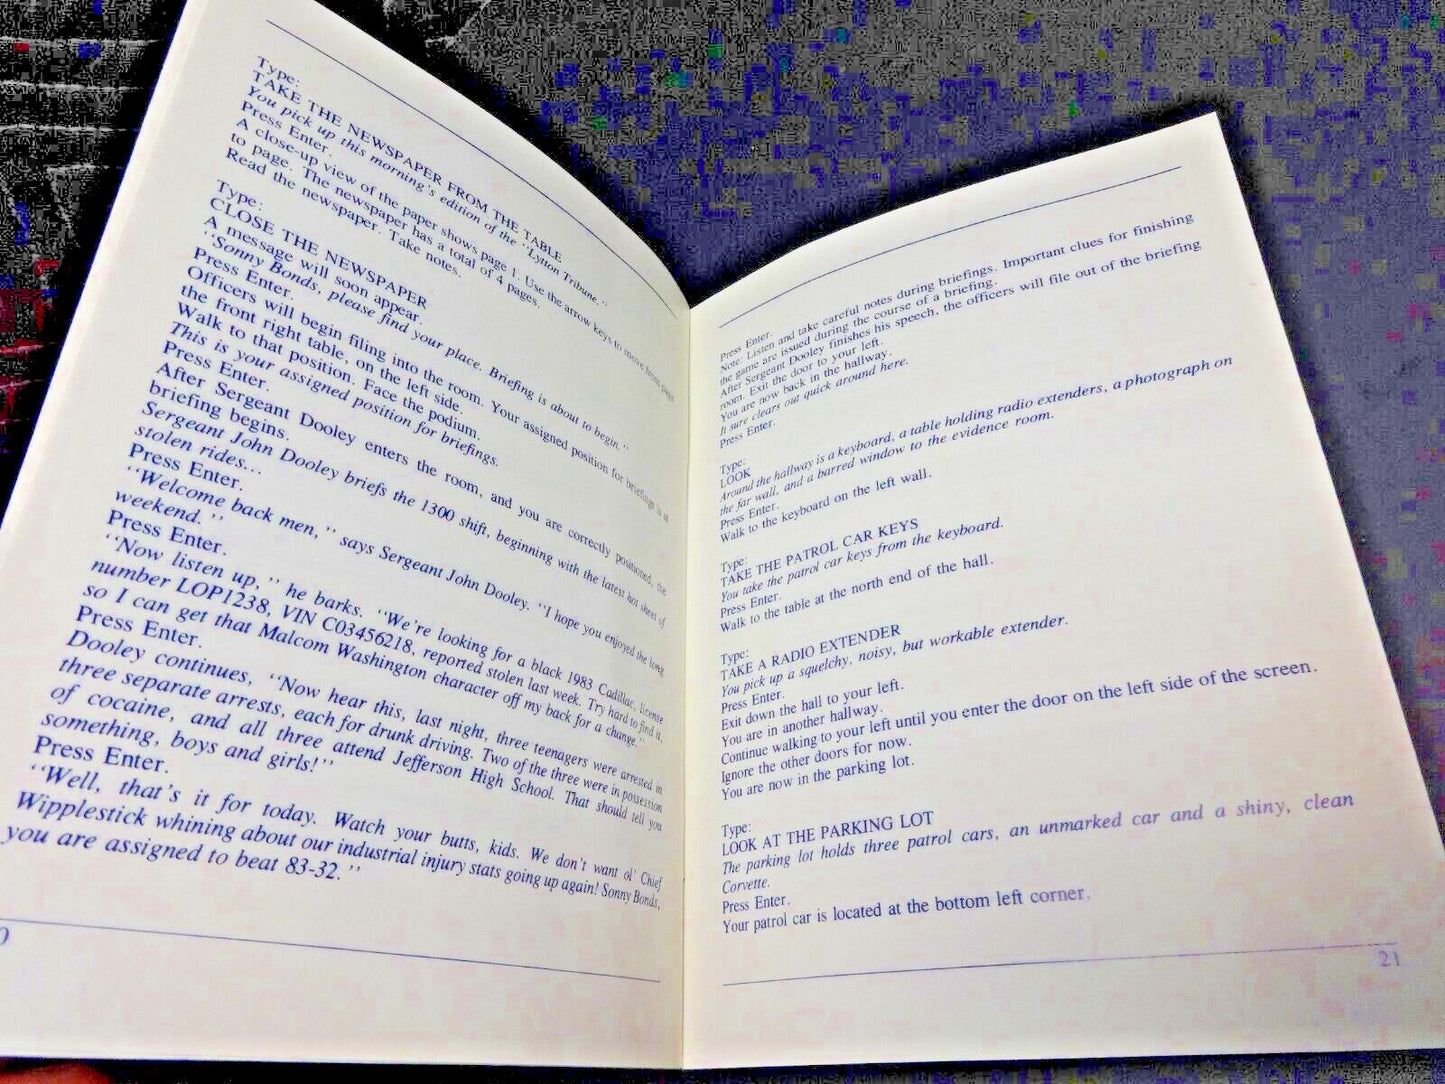 Type:
TAKE THE NEWSPAPER FROM THE TABLE
You pick up this morning's edition of the ‘‘Lytton Tribune.’’
Press Enter.
A close-up view of the paper shows page 1. Use the arrow keys to move from page
to page. The newspaper has a total of 4 pages.
Read the newspaper. Take notes.
Type:
CLOSE THE NEWSPAPER
A message will soon appear.
‘‘Sonny Bonds, please find your place. Briefing is about to begin.’’
Press Enter.
Officers will begin filing into the room. Your assigned position for briefings is at
the front right table, on the left side.
Walk to that position. Face the podium.
This is your assigned position for briefings.
Press Enter.
After Sergeant Dooley enters the room, and you are correctly positioned, the
briefing begins.
Sergeant John Dooley briefs the 1300 shift, beginning with the latest hot sheet of
stolen rides...
Press Enter.
‘‘Welcome back men,’’ says Sergeant John Dooley. ‘‘I hope you enjoyed the long
weekend.’’
Press Enter.
‘‘Now listen up,’’ he barks. ‘‘We're looking for a black 1983 Cadillac, license
number LOP1238, VIN C03456218, reported stolen last week. Try hard to find it,
so I can get that Malcom Washington character off my back for a change.’’
Press Enter.
Dooley continues, ‘‘Now hear this, last night, three teenagers were arrested in
three separate arrests, each for drunk driving. Two of the three were in possession
of cocaine, and all three attend Jefferson High School. That should tell you
something, boys and girls!’’
Press Enter.
‘‘Well, that's it for today. Watch your butts, kids. We don't want ol' Chief
Wipplestick whining about our industrial injury stats going up again! Sonny Bonds,
you are assigned to beat 83-32.’’
0
Press Enter.
Note: Listen and take careful notes during briefings. Important clues for finishing
the game are issued during the course of a briefing.
After Sergeant Dooley finishes his speech, the officers will file out of the briefing
room. Exit the door to your left.
You are now back in the hallway.
It sure clears out quick around here.
Press Enter.
Type:
LOOK
Around the hallway is a keyboard, a table holding radio extenders, a photograph on
the far wall, and a barred window to the evidence room.
Press Enter.
Walk to the keyboard on the left wall.
Type:
TAKE THE PATROL CAR KEYS
You take the patrol car keys from the keyboard.
Press Enter.
Walk to the table at the north end of the hall.
Type:
TAKE A RADIO EXTENDER
You pick up a squelchy, noisy, but workable extender.
Press Enter.
Exit down the hall to your left.
You are in another hallway.
Continue walking to your left until you enter the door on the left side of the screen.
Ignore the other doors for now.
You are now in the parking lot.
Type:
LOOK AT THE PARKING LOT
The parking lot holds three patrol cars, an unmarked car and a shiny, clean
Corvette.
Press Enter.
Your patrol car is located at the bottom left corner.
21